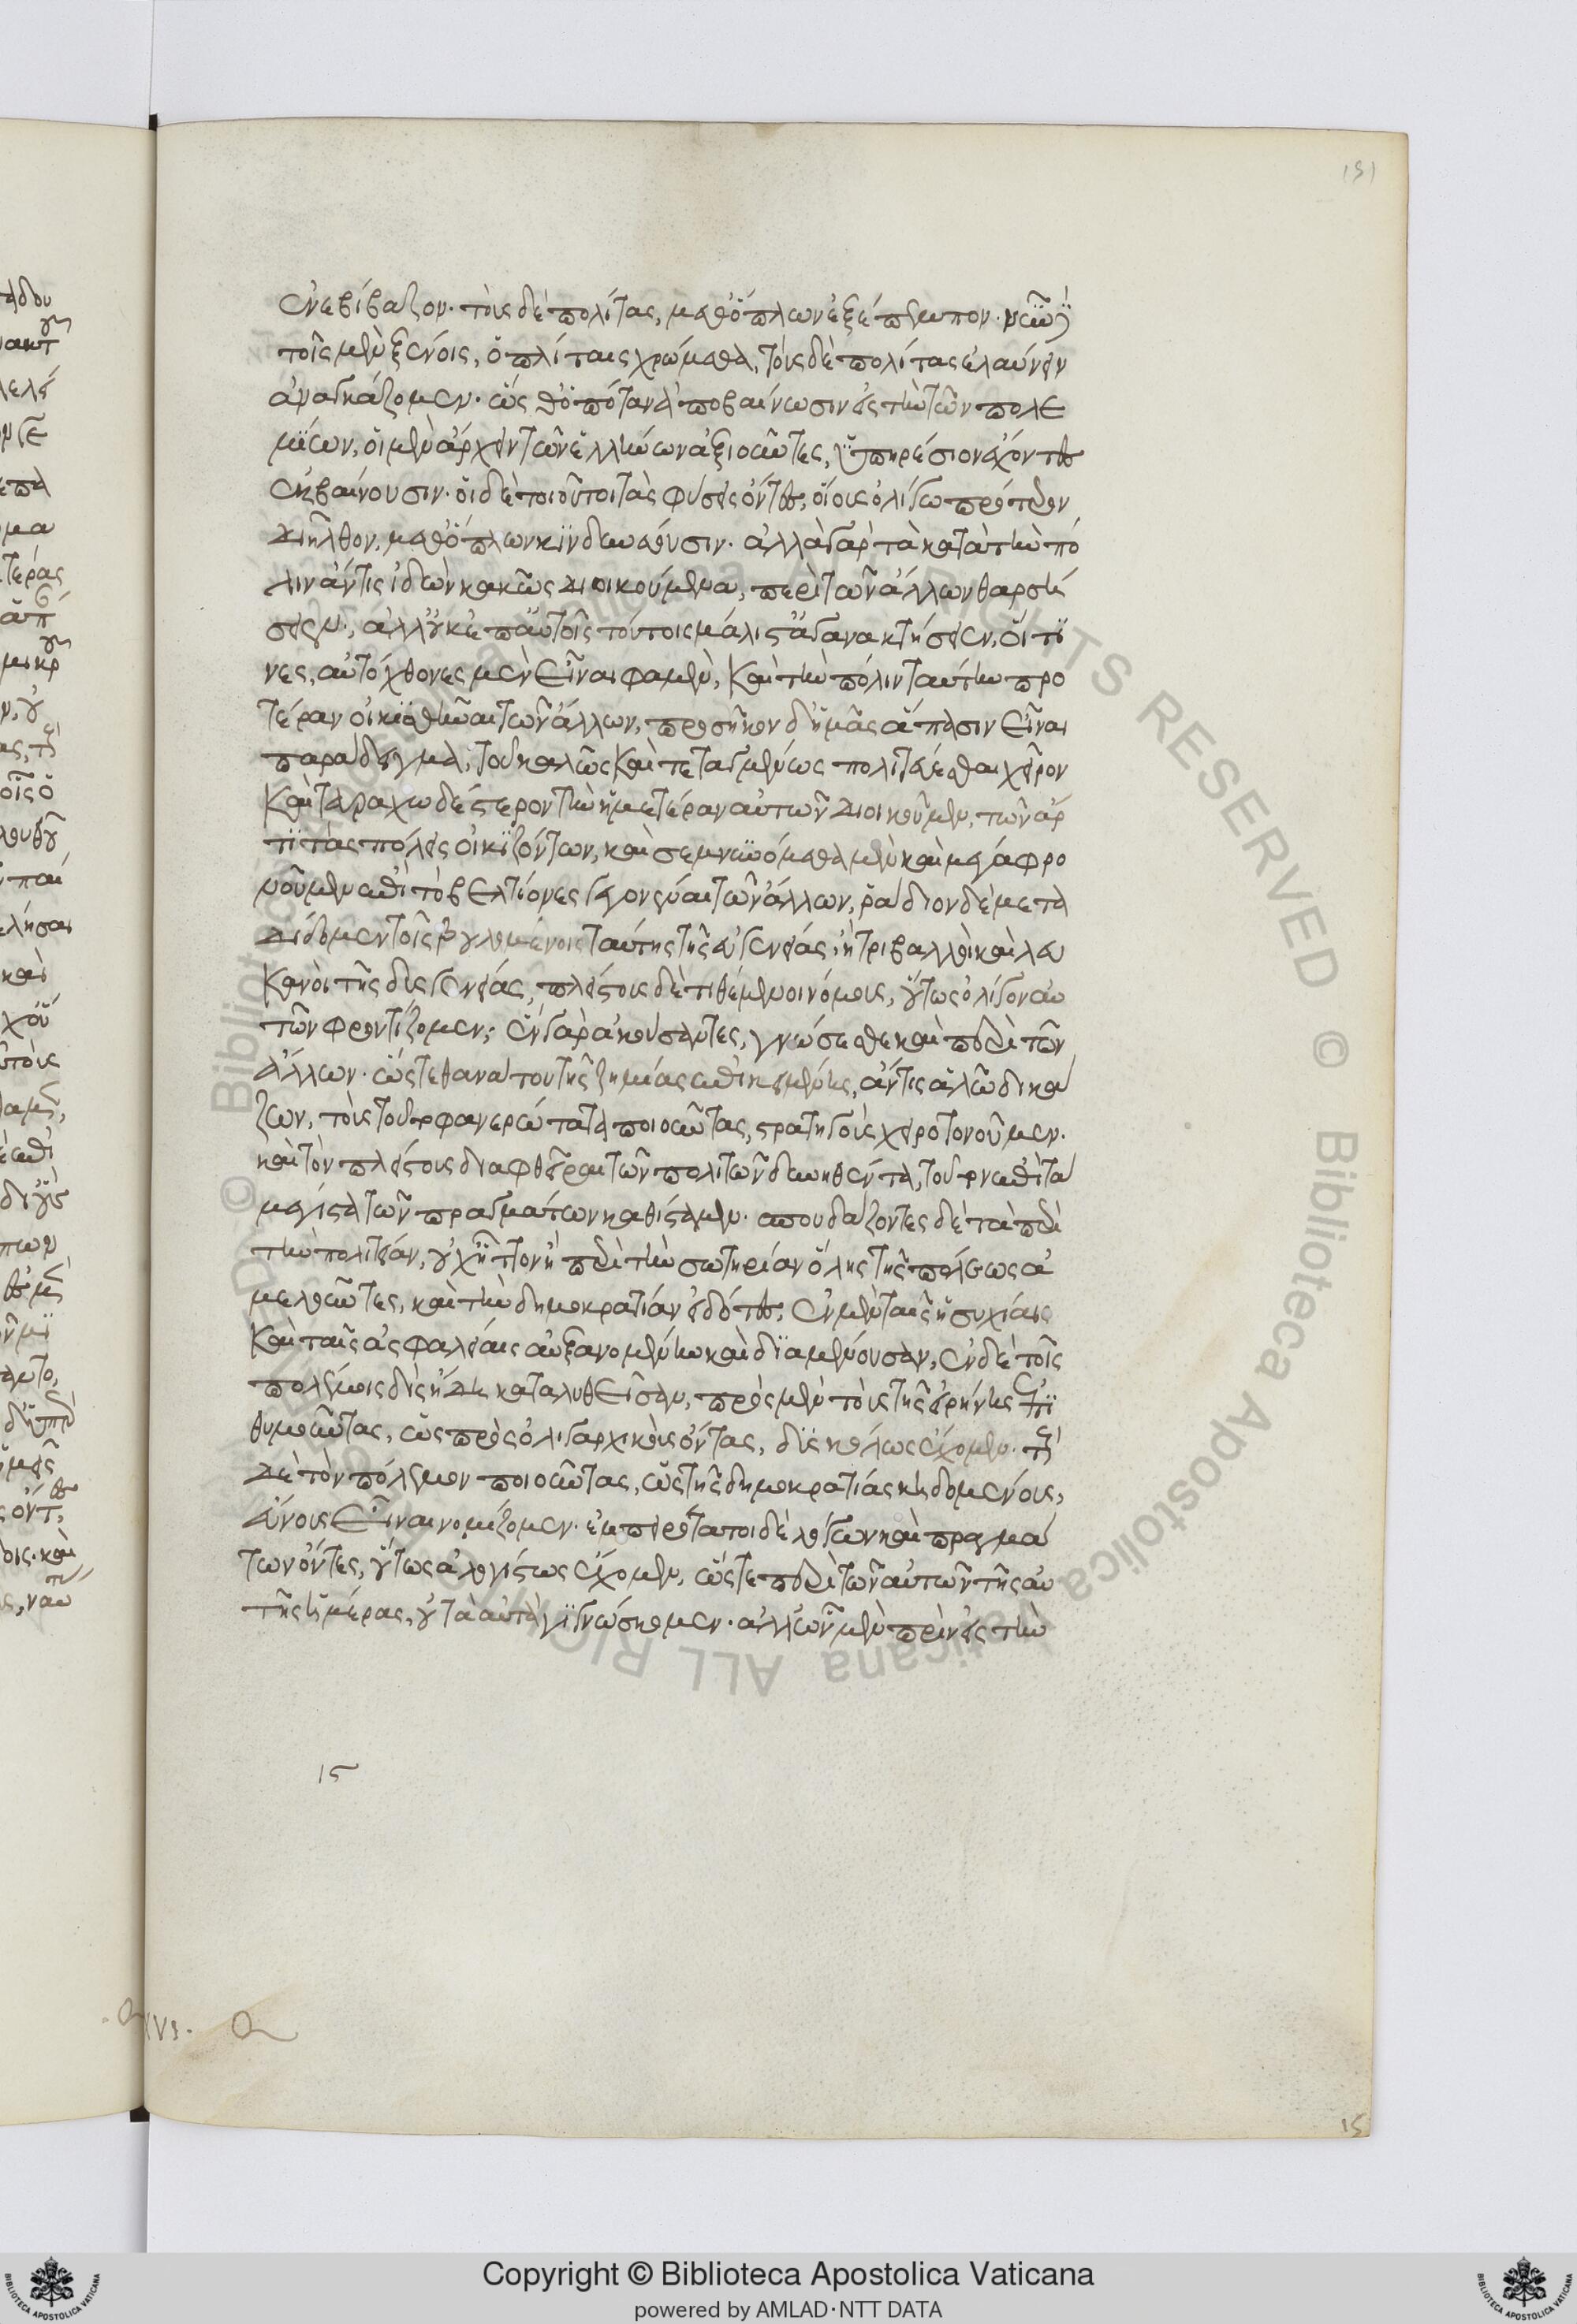 ἐνεβίβαζον· τοὺς δὲ πολίτας, μεθ' ὅπλων ἐξέπεμπον· νῦν δὲ
τοῖς μὲν ξένοις, ὁπλίταις χρώμεθα, τοὺς δὲ πολίτας ἐλαύνειν
ἀναγκάζομεν· ὥσθ' ὁπόταν ἀποβαίνωσιν εἰς τὴν τῶν πολε
μίων, οἱ μὲν ἄρχειν τῶν ἑλλήνων ἀξιοῦντες, ὑπηρέσιον ἔχοντες
ἐκβαίνουσιν· οἱ δὲ τοιοῦτοι τὰς φύσεις ὄντες, οἵους ὀλίγω πρότερον
διῆλθον, μεθ' ὅπλων κινδυνεύουσιν· ἀλλὰ γὰρ τὰ κατὰ τὴν πό
λιν ἄν τις ἰδὼν κακῶς διοικούμενα, περὶ τῶν ἄλλων θαρσή
σειεν, ἀλλ' οὐκ ἐπ' αὐτοῖς τούτοις μάλιστ' ἀγανακτήσειεν, οἵ τι
νες, αὐτόχθονες μὲν εἶναι φαμὲν, καὶ τὴν πόλιν ταύτην προ
τέραν οἰκισθῆναι τῶν ἄλλων, προσῆκον δ' ἡμᾶς ἅπασιν εἶναι
παράδειγμα, τοῦ καλῶς καὶ τεταγμένως πολιτεύεσθαι χεῖρον
καὶ ταραχωδέστερον τὴν ἡμετέραν αὐτῶν διοικοῦμεν, τῶν ἄρ
τι τὰς πόλεις οἰκιζόντων, καὶ σεμνυνόμεθα μὲν καὶ μέγα φρο
νοῦμεν ἐπὶ τὸ βελτίονες γεγονέναι τῶν ἄλλων, ῥάδιον δὲ μετα
δίδομεν τοῖς βουλομένοις ταύτης τῆς εὐγενείας, ἢ τριβαλλοὶ καὶ λευ
κανοὶ τῆς δυσγενείας, πλείστους δὲ τιθέμενοι νόμους, οὕτως ὀλίγον αὐ
τῶν φροντίζομεν; ἓν γὰρ ἀκούσαντες, γνώσεσθε καὶ περὶ τῶν
ἄλλων· ὥστε θανάτου τῆς ζημίας ἐπικειμένης, ἄν τις ἁλῶ δεκά
ζων, τοὺς τοῦτο φανερώτατα ποιοῦντας, στρατηγοὺς χειροτονοῦμεν·
καὶ τὸν πλείστους διαφθεῖραι τῶν πολιτῶν δυνηθέντα, τοῦτον ἐπὶ τὰ
μέγιστα τῶν πραγμάτων καθίσταμεν· σπουδάζοντες δὲ τὰ περὶ
τὴν πολιτείαν, οὐχ ἧττον ἢ περὶ τὴν σωτηρίαν ὅλης τῆς πόλεως ἀ
μελοῦντες, καὶ τὴν δημοκρατίαν εἰδότες, ἐν μὲν ταῖς ἡσυχίαις
καὶ ταῖς ἀσφαλείαις αὐξανομένην καὶ διαμένουσαν, ἐν δὲ τοῖς
πολέμοις δὶς ἤδη καταλυθεῖσαν, πρὸς μὲν τοὺς τῆς εἰρήνης ἐπι
θυμοῦντας, ὡς πρὸς ὀλιγαρχικοὺς ὄντας, δυσκόλως ἔχομεν· τοὺς
δὲ τὸν πόλεμον ποιοῦντας, ὡς τῆς δημοκρατίας κηδομένους,
εὔνους εἶναι νομίζομεν· ἐμπειρότατοι δὲ λόγων καὶ πραγμά
των ὄντες, οὕτως ἀλογίστως ἔχομεν, ὥστε περὶ τῶν αὐτῶν τῆς αὐ
τῆς ἡμέρας, οὐ ταὐτὰ γιγνώσκομεν· ἀλλ' ὧν μὲν πρὶν εἰς τὴν
15
Copyright © Biblioteca Apostolica Vaticana
powered by AMLAD·NTT DATA